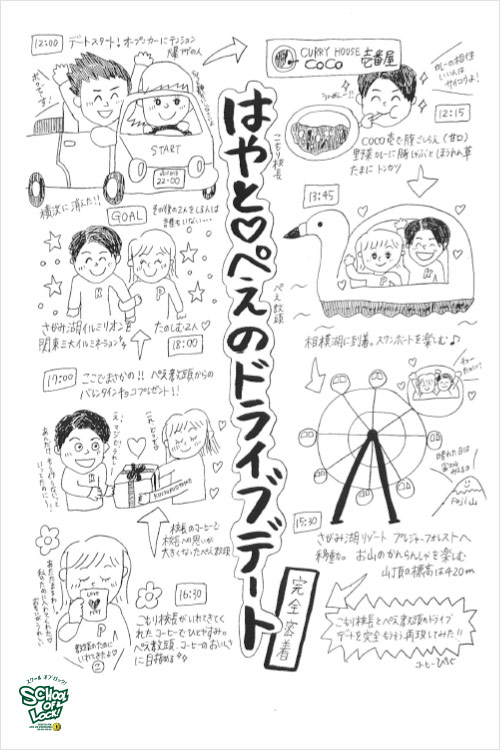 はやと♡ぺえのドライブデート
完全密着
こもり校長
ぺえ教頭
12:00 デートスタート！オープンカーにテンション
爆アゲの人
START
22:00
横浜に消えた!!
GOAL
CURRY HOUSE
CoCo 壱番屋
カレーの相性
いい人は
サイコウよ！
12:15
COCO壱で腹ごしらえ（甘口）
野菜カレーに豚しゃぶとほうれん草
たまに トンカツ
13:45
相模湖に到着。スワンボートを楽しむ♪
晴れた日は
富士山
みえる！
Fuji山
15:30
さがみ湖リゾート プレジャーフォレストへ
移動。お山のかんらんしゃを楽しむ
山頂の標高は420m
16:30
こもり校長がいれてきてく
れたコーヒーでひとやすみ。
ぺえ教頭、コーヒーのおいしさ
に目覚める
LOVE
教頭のために
いれてきたよ♡
校長のコーヒーで
校長への思いが
大きくなったぺえ教頭
17:00 ここでまさかの!! ぺえ教頭からの
バレンタインチョコプレゼント!!
え、マジですか？
18:00
さがみ湖イルミリオンを
たのしむ2人♡
関東三大イルミネーション
K
P
こもり校長とぺえ教頭のドライブ
デートを完全もうそう再現してみた!!
スクール オブ ロック！
SCHOOL
OF
LOCK!